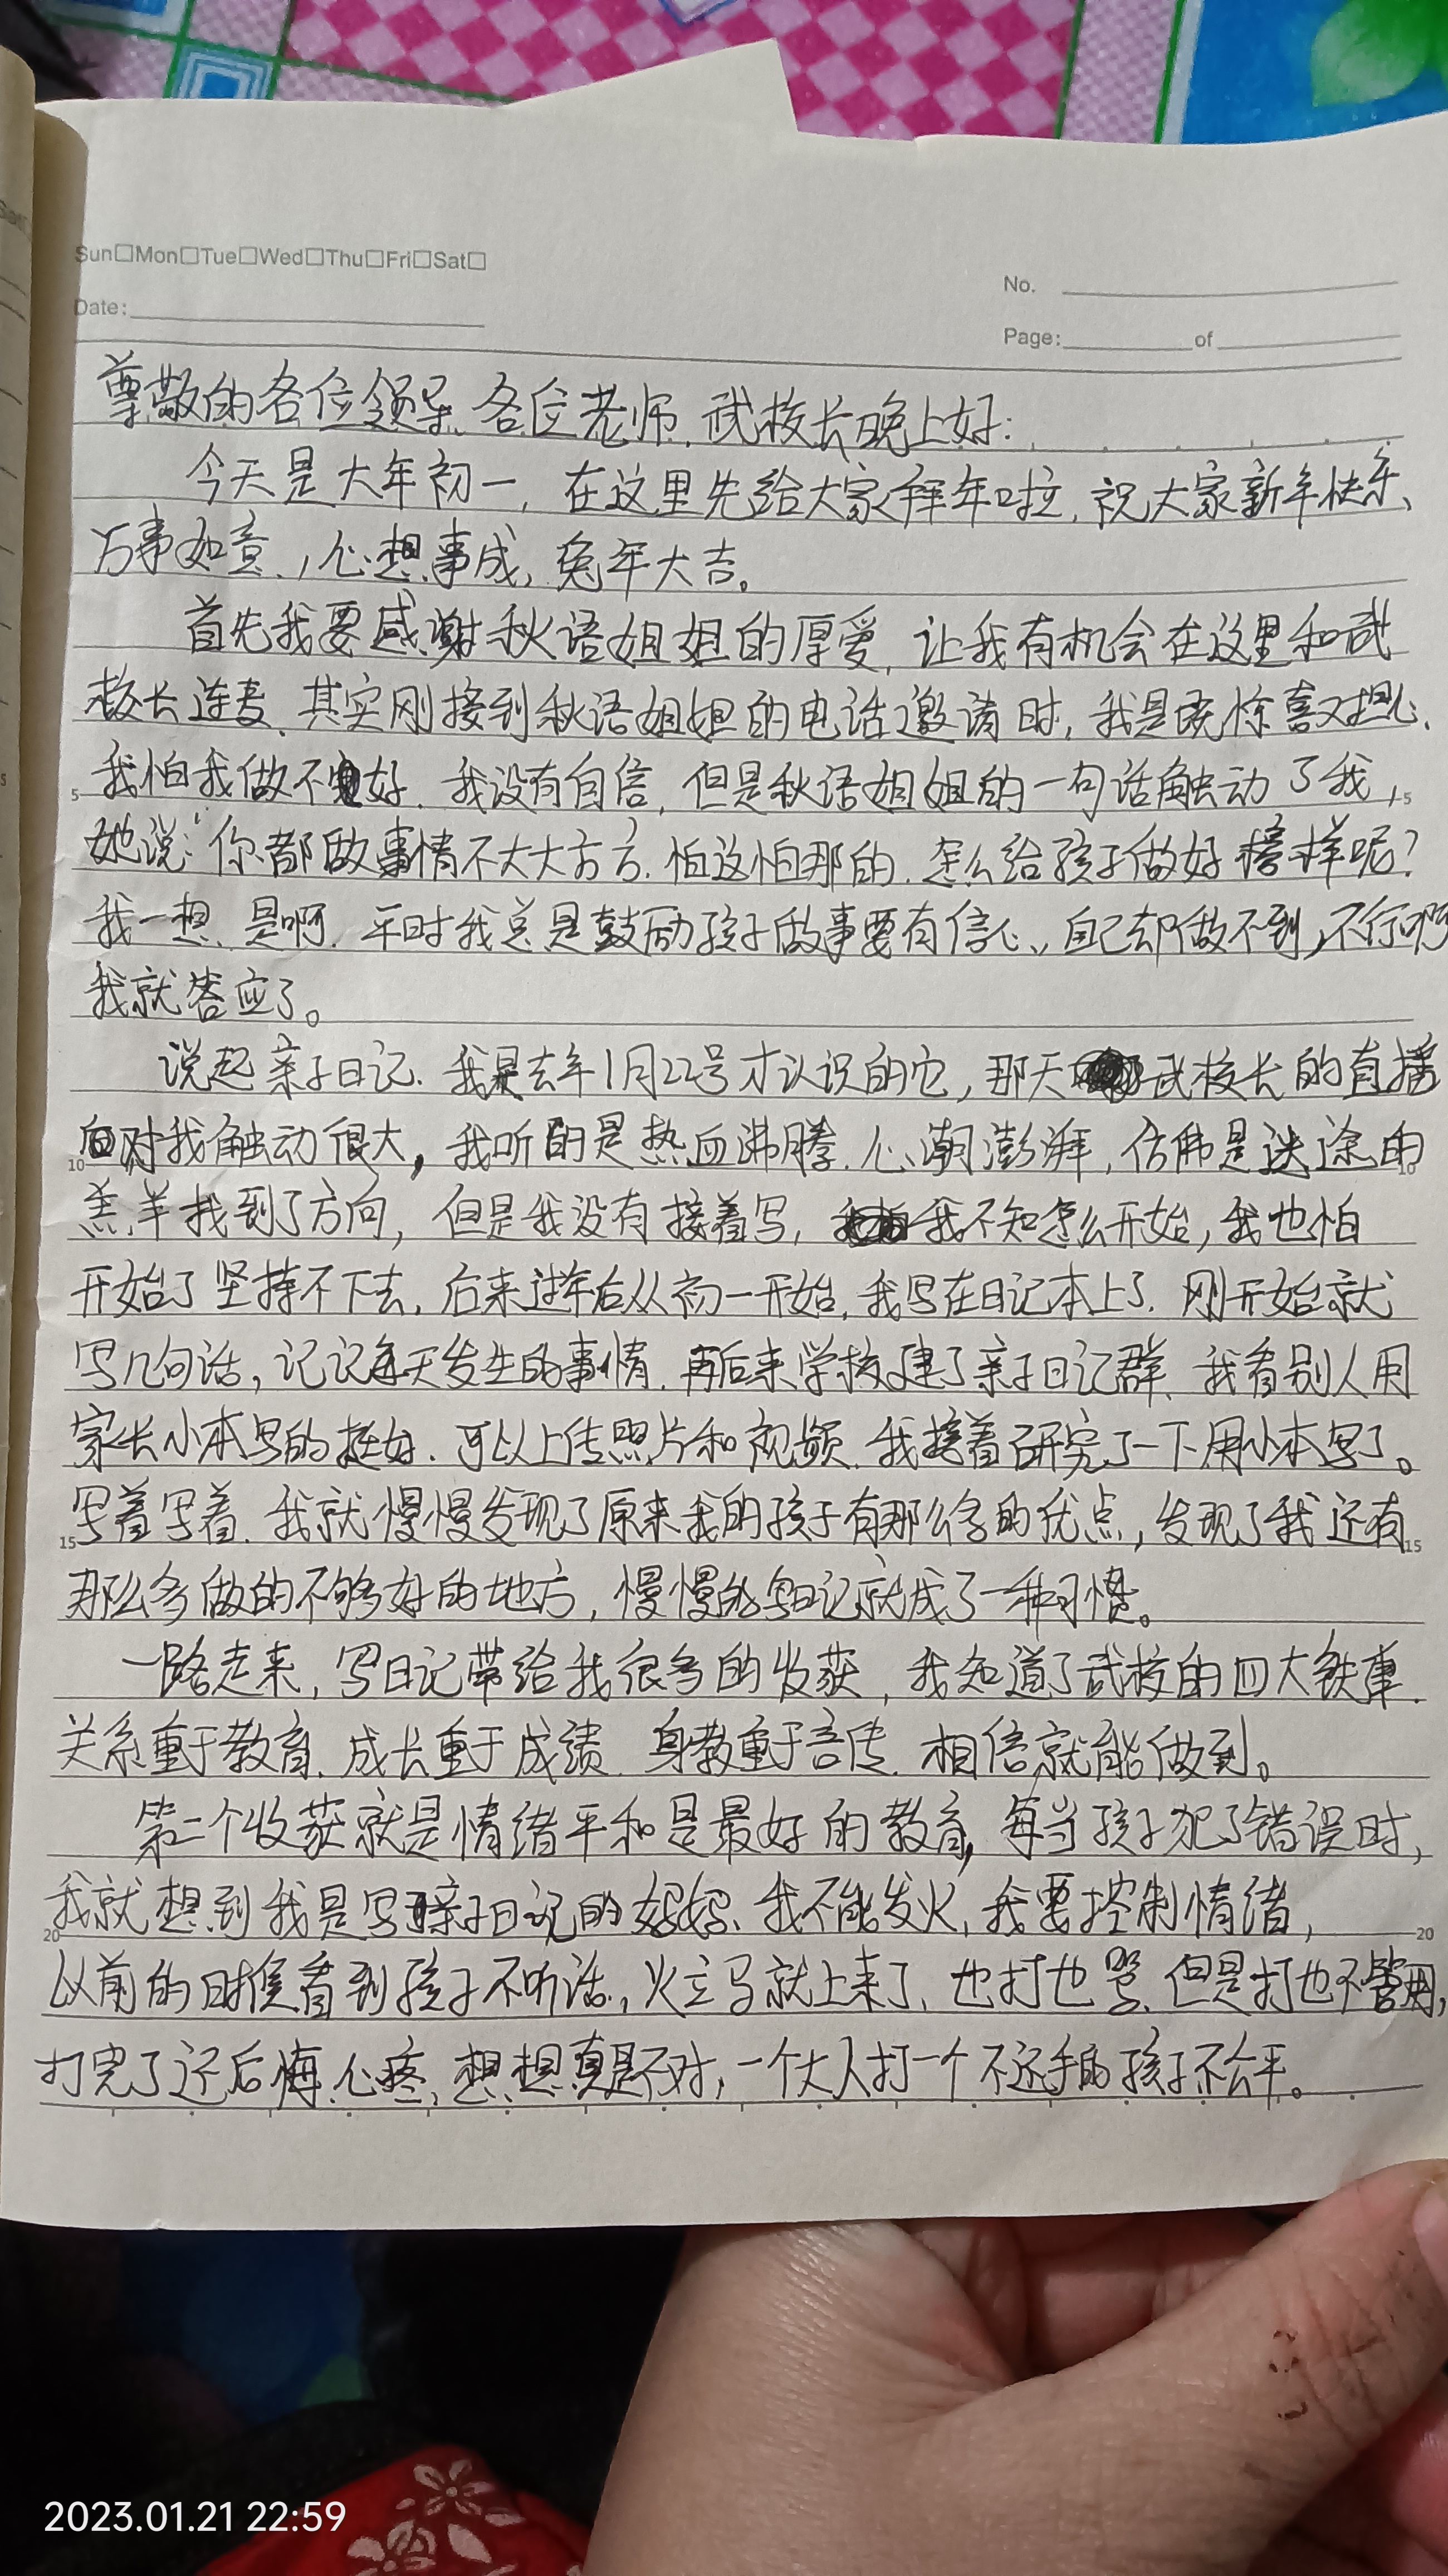 Sun□Mon□Tue□Wed□Thu□Fri□Sat□
No.
Date:
Page: of
尊敬的各位领导、各位老师、武校长晚上好:
今天是大年初一,在这里先给大家拜年啦,祝大家新年快乐、
万事如意、心想事成,兔年大吉。
首先我要感谢秋语姐姐的厚爱,让我有机会在这里和武
校长连麦、其实刚接到秋语姐姐的电话邀请时,我是既惊喜又担心、
5 我怕我做不好、我没有自信,但是秋语姐姐的一句话触动了我, 5
她说:“你都做事情不大大方方、怕这怕那的、怎么给孩子做好榜样呢?
我一想、是啊、平时我总是鼓励孩子做事要有信心、自己却做不到,不行啊
我就答应了。
说起亲子日记、我是去年1月22号才认识的它,那天武校长的直播
10 对我触动很大,我听的是热血沸腾、心潮澎湃,仿佛是迷途的 10
羔羊找到了方向,但是我没有接着写,我不知怎么开始,我也怕
开始了坚持不下去,后来过年后从初一开始,我写在日记本上了、刚开始就
写几句话,记记每天发生的事情、再后来学校建了亲子日记群、我看别人用
家长小本写的挺好、可以上传照片和视频、我接着研究了一下用小本写了。
15 写着写着、我就慢慢发现了原来我的孩子有那么多的优点,发现了我还有 15
那么多做的不够好的地方,慢慢的写日记就成了一种习惯。
一路走来,写日记带给我很多的收获,我知道了武校的四大铁律、
关系重于教育、成长重于成绩、身教重于言传、相信就能做到。
第二个收获就是情绪平和是最好的教育,每当孩子犯了错误时,
20 我就想到我是写亲子日记的妈妈、我不能发火,我要控制情绪, 20
以前的时候看到孩子不听话,火立马就上来了、也打也骂、但是打也不管用,
打完了还后悔、心疼,想想真是不对,一个大人打一个不还手的孩子不公平。
2023.01.21 22:59